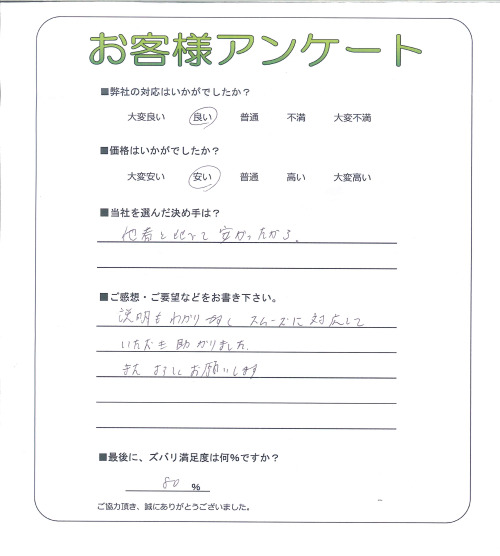 お客様アンケート
■弊社の対応はいかがでしたか？
大変良い 良い 普通 不満 大変不満
■価格はいかがでしたか？
大変安い 安い 普通 高い 大変高い
■当社を選んだ決め手は？
他者と比べて安かったから。
■ご感想・ご要望などをお書き下さい。
説明もわかり易く スムーズに対応して
いただき助かりました。
また よろしくお願いします
■最後に、ズバリ満足度は何％ですか？
80 %
ご協力頂き、誠にありがとうございました。